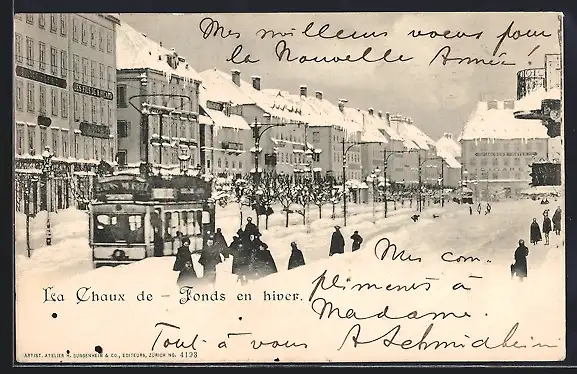 Mes meilleurs voeux pour
la Nouvelle Année!
Mes com-
pliments à
Madame.
Tout à vous ASchmidhein
La Chaux de - Fonds en hiver.
ARTIST. ATELIER H. GUGGENHEIM & CO., EDITEURS, ZÜRICH No. 4193